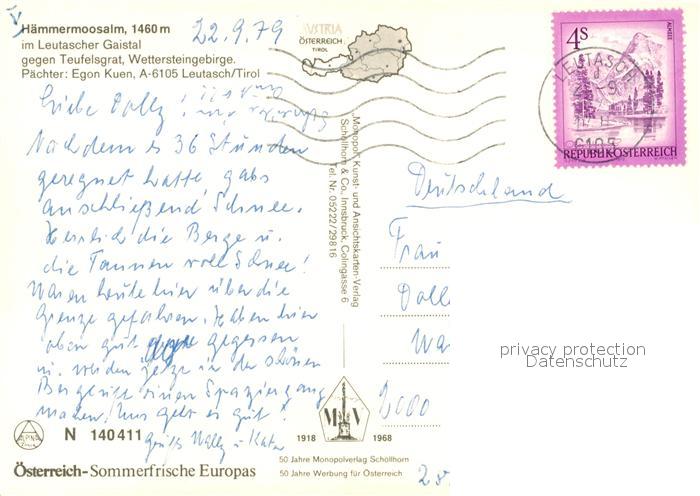 Hämmermoosalm, 1460 m
im Leutascher Gaistal
gegen Teufelsgrat, Wettersteingebirge.
Pächter: Egon Kuen, A-6105 Leutasch/Tirol
22.9.79
AUSTRIA
ÖSTERREICH
TIROL
Liebe Dolly!
Nachdem es 36 Stunden
geregnet hatte, gabs
anschließend Schnee.
Herrlich die Berge u.
die Tannen voll Schnee!
Waren heute hier über die
Grenze gefahren. Haben hier
oben gut gegessen
u. werden jetzt in der schönen
Bergluft einen Spaziergang
machen. Uns geht es gut!
Grüße Wally u. Kater
N 140411
ALPINA
Österreich-Sommerfrische Europas
„Monopol" Kunst- und Ansichtskarten-Verlag
Schöllhorn & Co., Innsbruck, Colingasse 6
Tel. Nr. 05222/29816
MV
1918 1968
50 Jahre Monopolverlag Schöllhorn
50 Jahre Werbung für Österreich
4S
ALMSEE
REPUBLIK ÖSTERREICH
LEUTASCH
6105
Deutschland
Frau
Doll
Wa
2000
privacy protection
Datenschutz